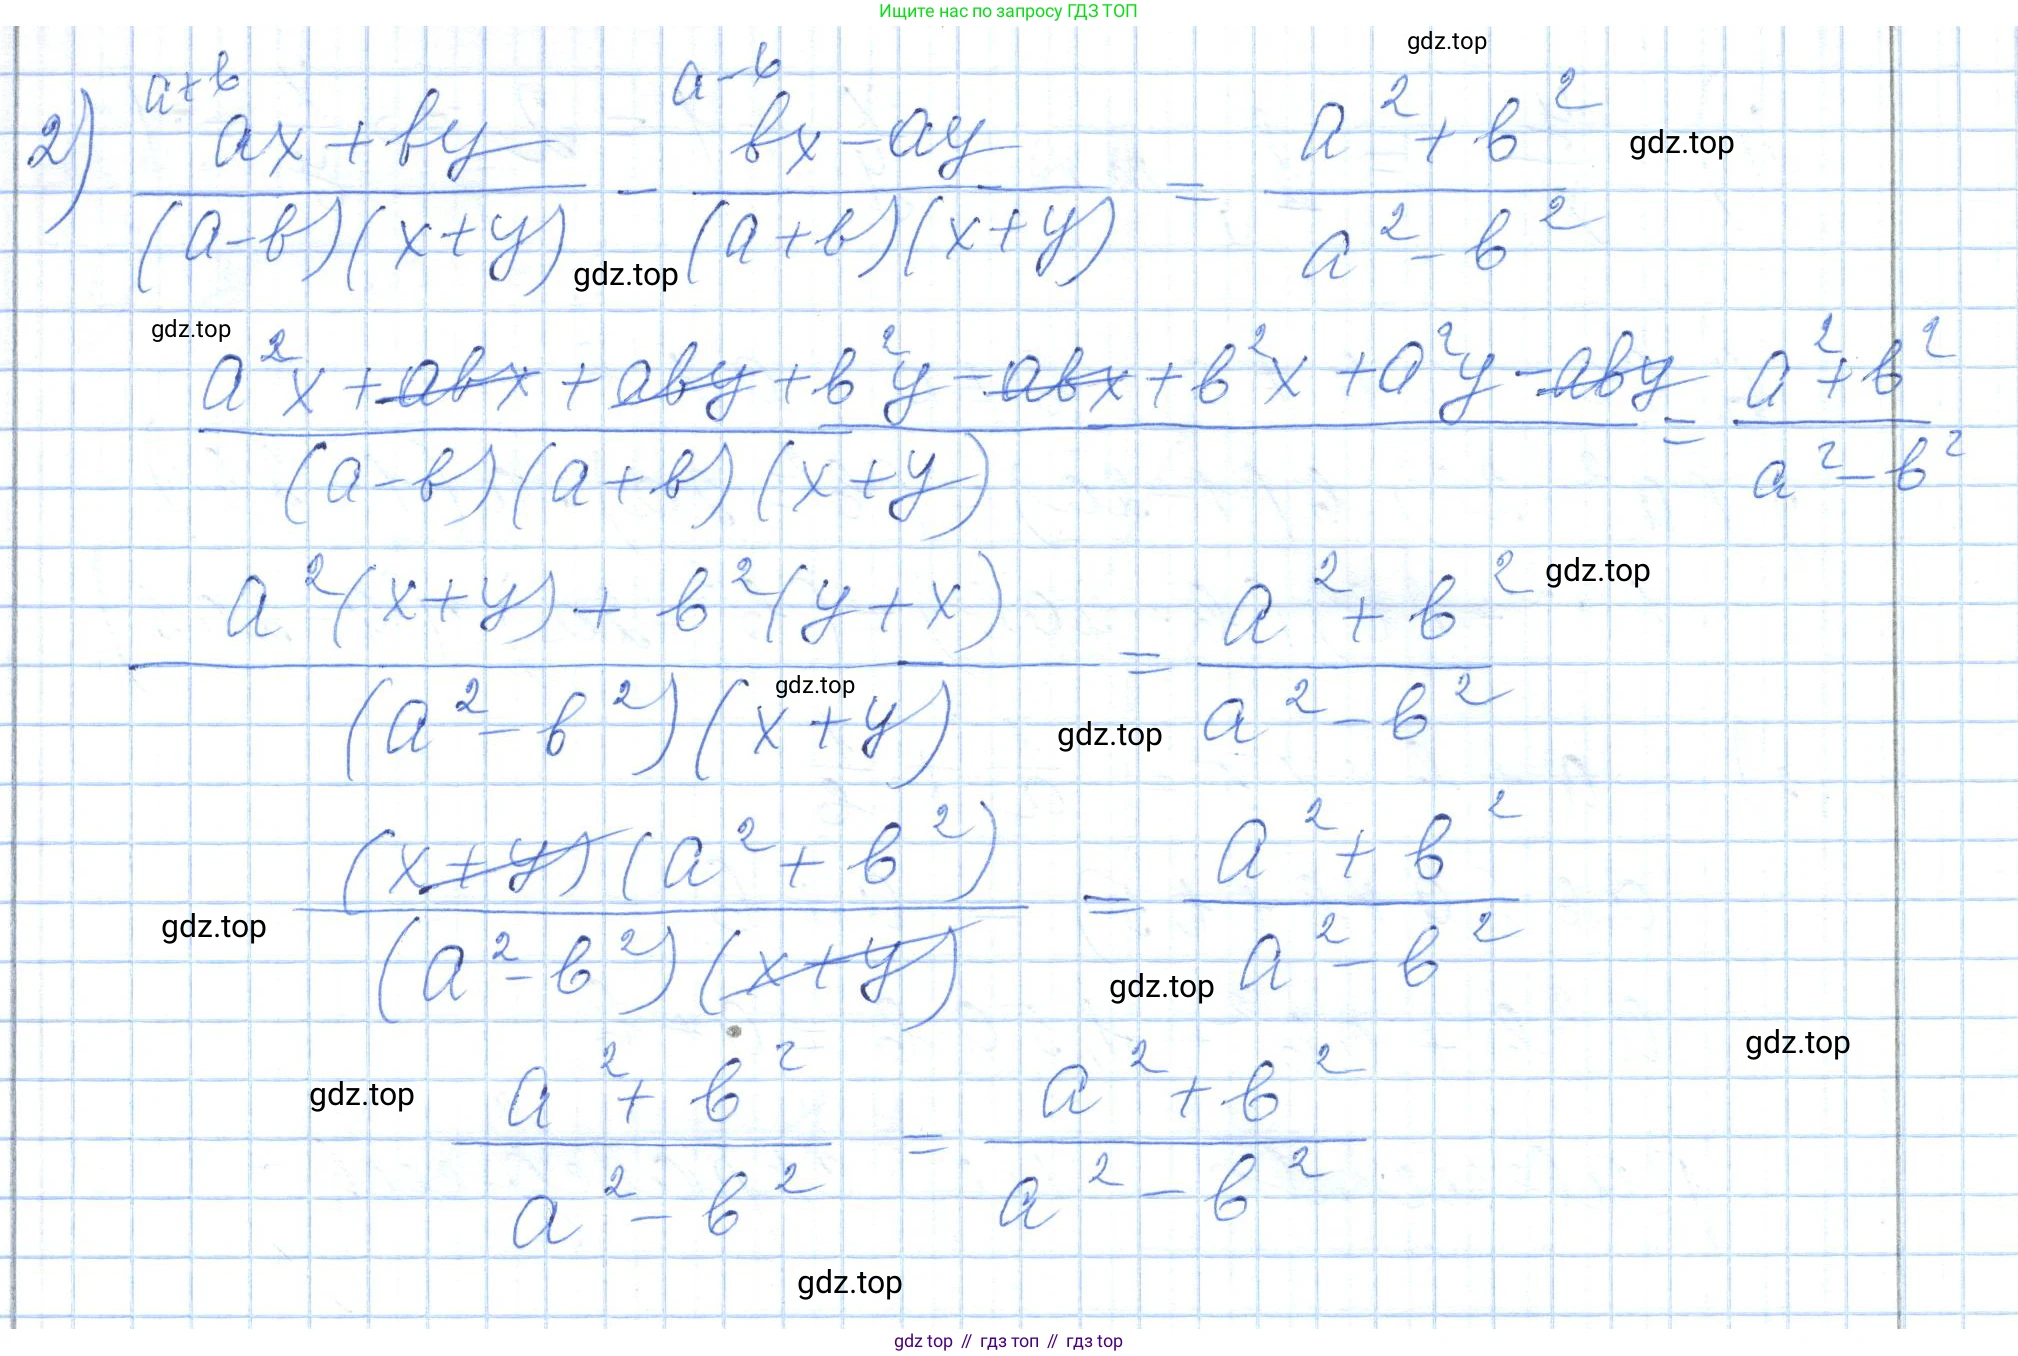 Ищите нас по запросу ГДЗ ТОП
gdz.top
a+b a-b
2) (ax+by)/((a-b)(x+y)) - (bx-ay)/((a+b)(x+y)) = (a²+b²)/(a²-b²)
gdz.top
gdz.top
gdz.top
(a²x+abx+aby+b²y-abx+b²x+a²y-aby)/((a-b)(a+b)(x+y)) = (a²+b²)/(a²-b²)
gdz.top
(a²(x+y)+b²(y+x))/((a²-b²)(x+y)) = (a²+b²)/(a²-b²)
gdz.top
gdz.top
((x+y)(a²+b²))/((a²-b²)(x+y)) = (a²+b²)/(a²-b²)
gdz.top
gdz.top
gdz.top
gdz.top
(a²+b²)/(a²-b²) = (a²+b²)/(a²-b²)
gdz.top
gdz top // гдз топ // гдз top